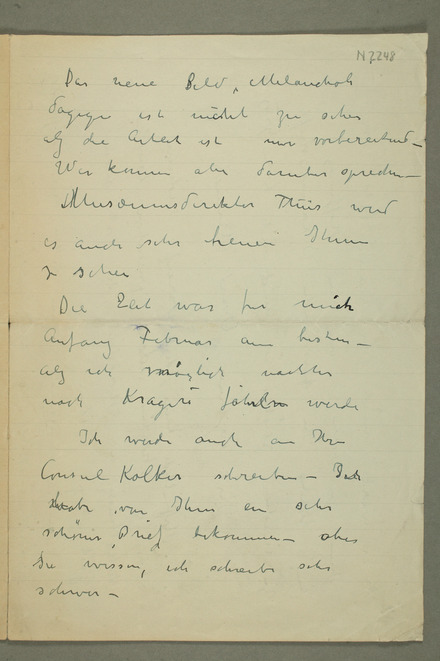 N 2248
Das neue Bild „Melancholi
dagegen ist nicht zu sehen
als die Arbeit ist nur vorbereitend –
Wir können aber darüber sprechen –
Musæumsdirektor Thiis wird
es auch sehr freuen Ihnen
zu sehen
Die Zeit war für mich
Anfang Februar am besten –
als ich möglich nachher
nach Kragerö fahren werde
Ich werde auch an Hrn
Consul Kolker schreiben – Ich
habe von Ihm ein sehr
schöner Brief bekommen – aber
Sie wissen, ich schreibe sehr
schwer –